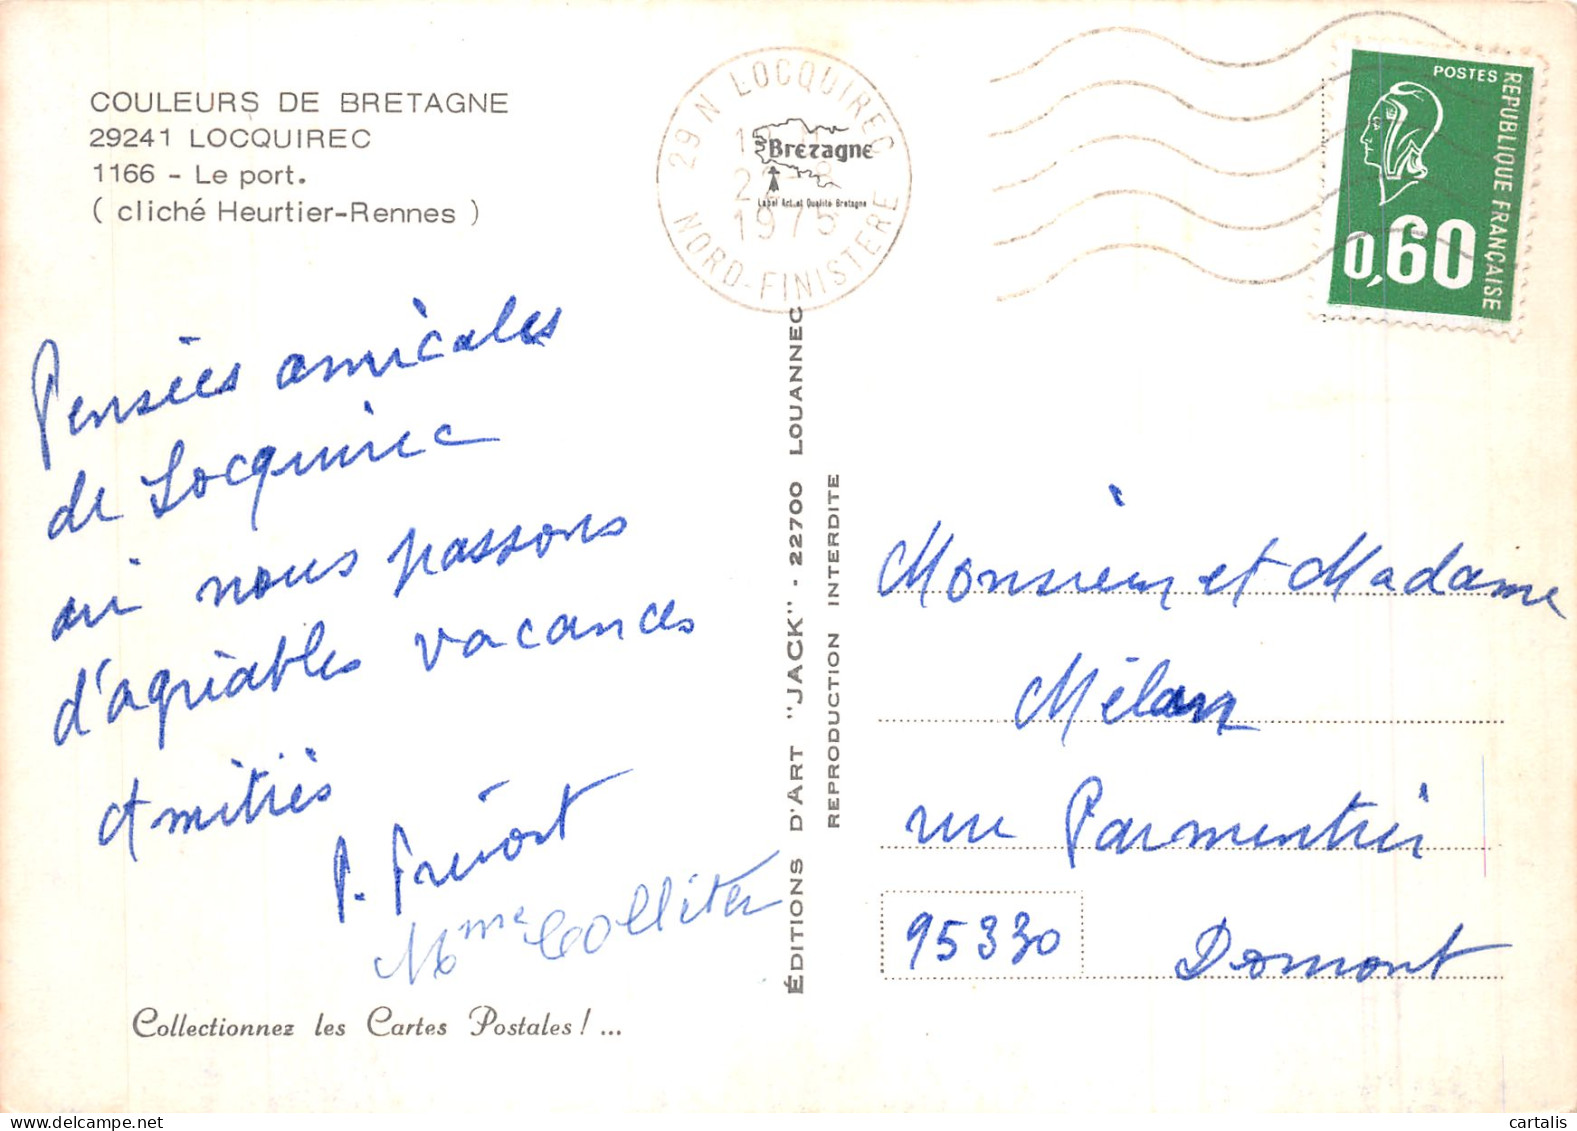 COULEURS DE BRETAGNE
29241 LOCQUIREC
1166 - Le port.
( cliché Heurtier-Rennes )
29 N LOCQUIREC
1975
NORD-FINISTERE
Bretagne
Label Art et Qualité Bretagne
POSTES
REPUBLIQUE FRANÇAISE
0,60
Pensées amicales
de Locquirec
où nous passons
d'agréables vacances
Amitiés
P. Prévost
Mme Colliter
Collectionnez les Cartes Postales ! ...
ÉDITIONS D'ART "JACK" - 22700 LOUANNEC
REPRODUCTION INTERDITE
Monsieur et Madame
Mélan
rue Parmentier
95330 Domont
cartalis